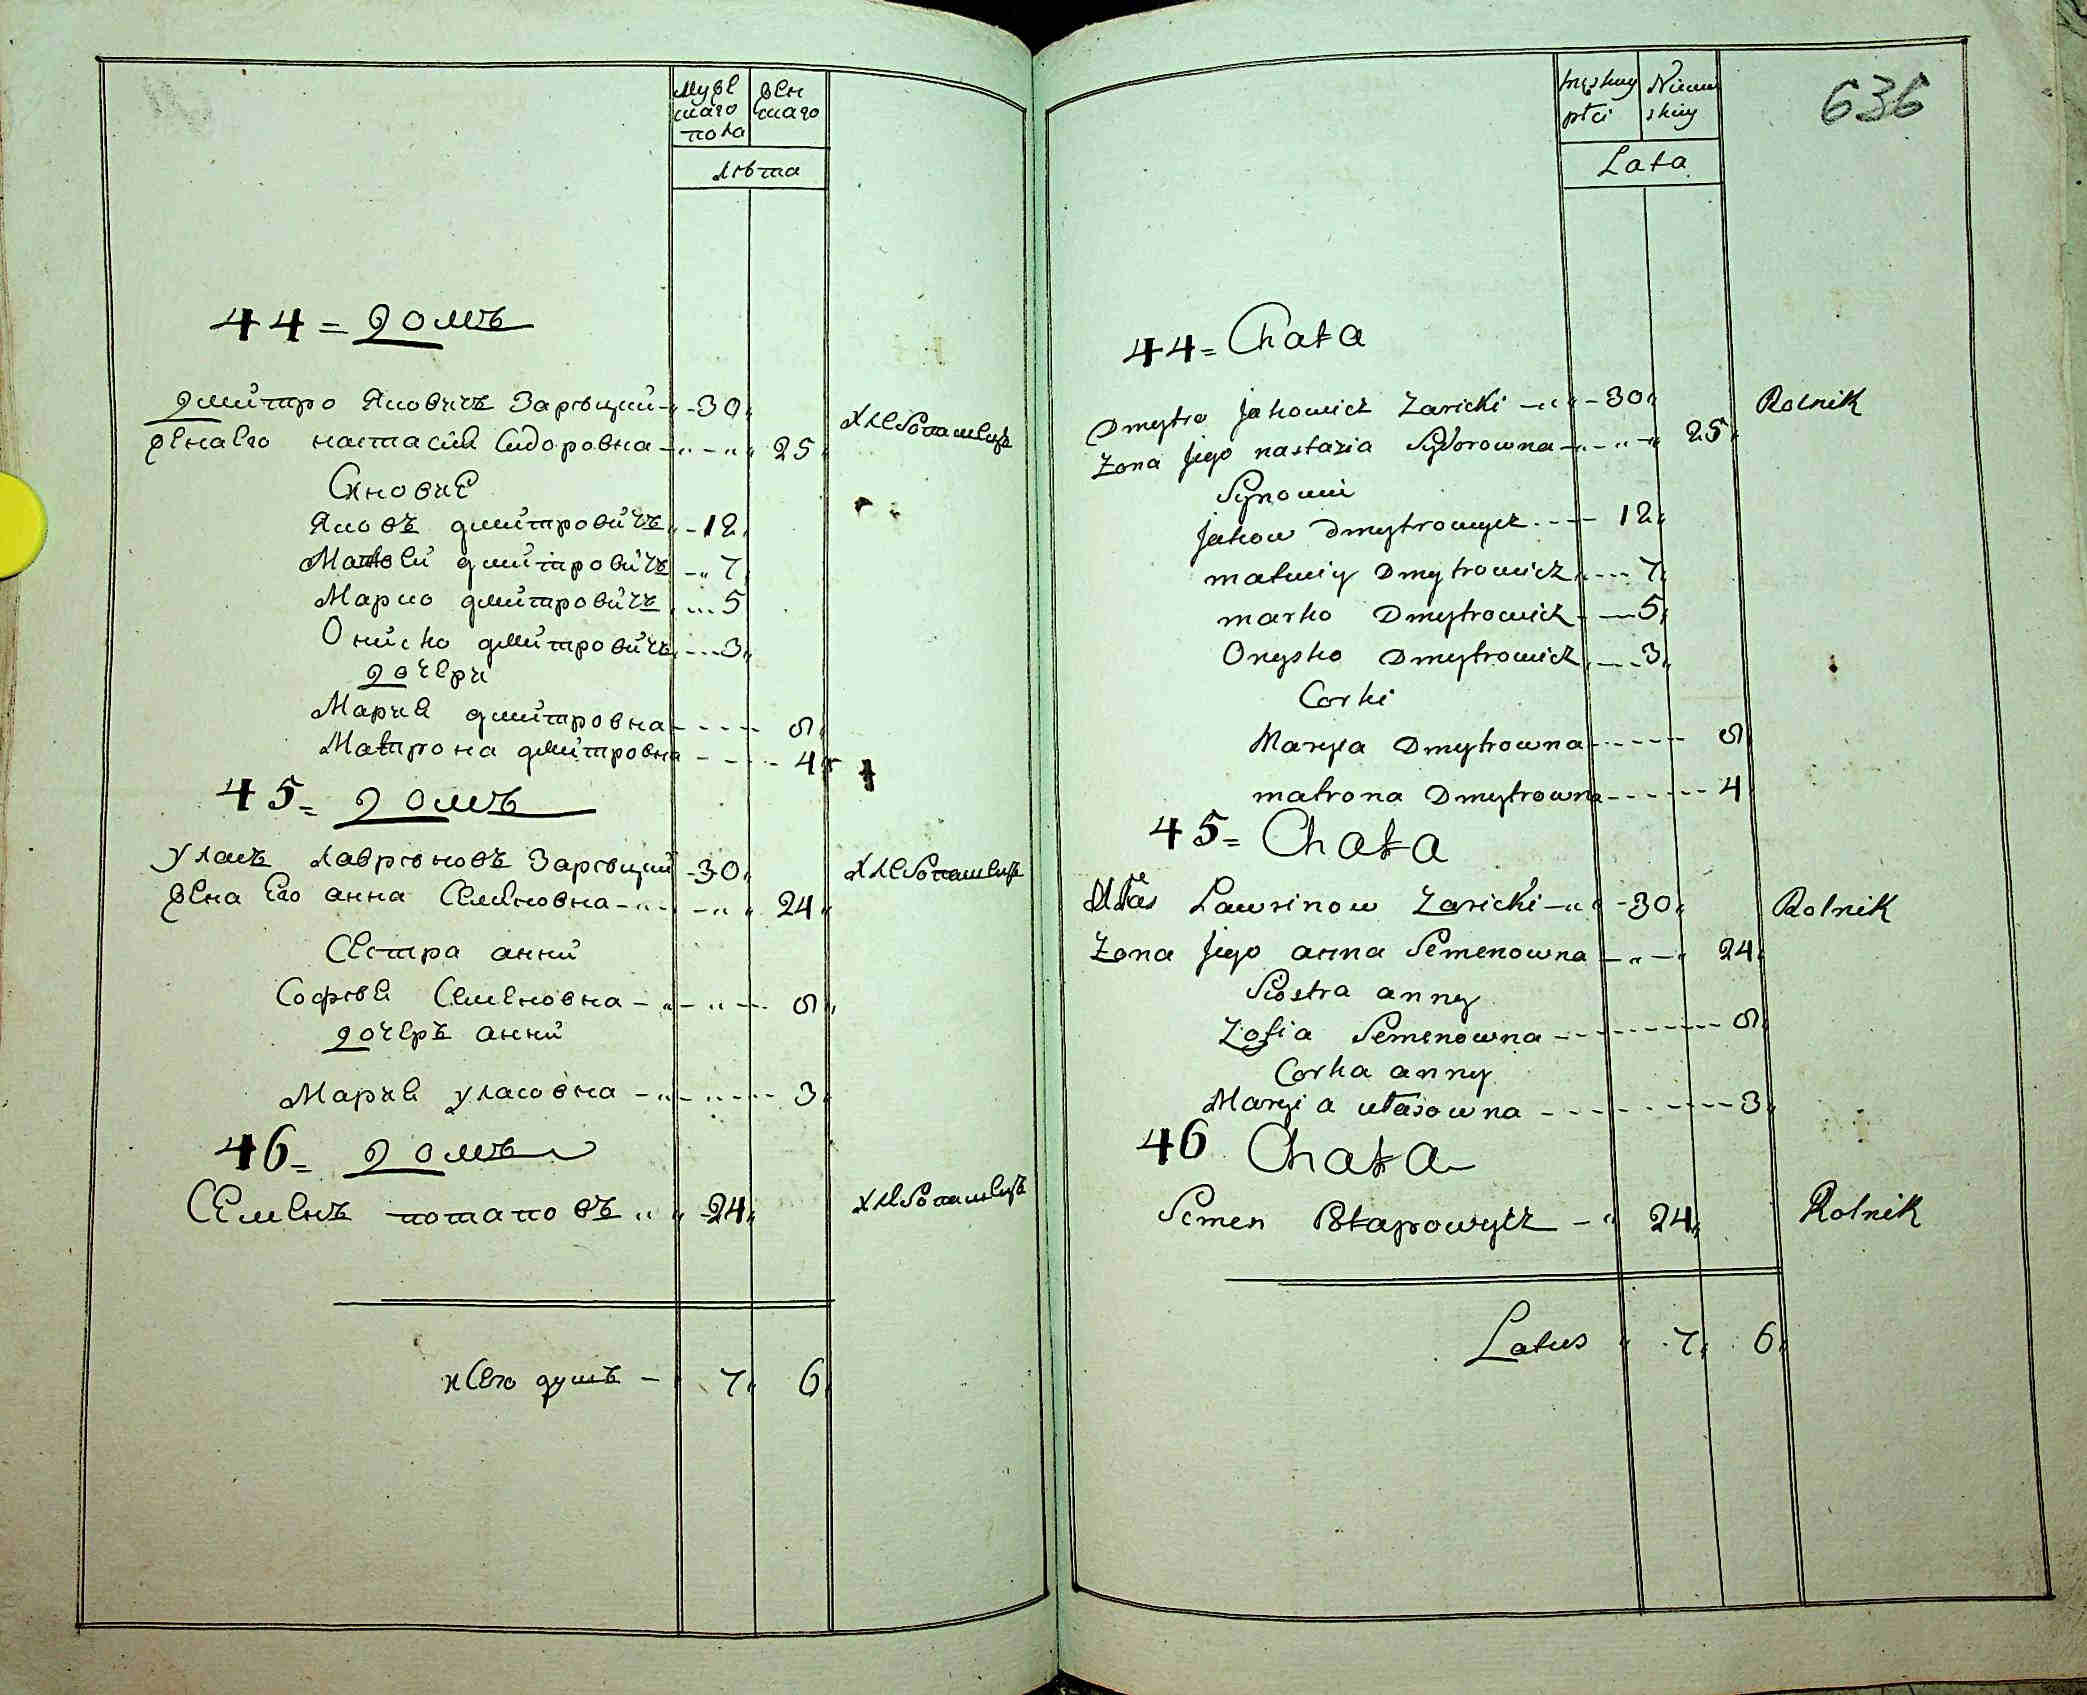 Муже
скаго
пола
жен
скаго
лѣта
44 = домъ
Дмитро Яковичъ Зарѣцкий - 30
хлебопашецъ
жена Его настасия Сидоровна - 25
Синовие
Яковъ дмитровичъ - 12
Матвей дмитровичъ - 7
Марко дмитровичъ - 5
Ониско дмитровичъ - 3
дочери
Мария дмитровна - 9
Матрона дмитровна - 4
45 = домъ
Уласъ лаврѣновъ Зарѣцкий - 30
хлебопашецъ
жена Его анна Семеновна - 24
Сестра анни
Софѣя Семеновна - 9
дочеръ анни
Мария уласовна - 3
46 = домъ
Семенъ потаповъ 24
хлебопашецъ
душъ - 7 6
636
męskiey
płci
Niewie
skiey
Lata
44 = Chata
Dmytro Jakowicz Zaricki - 30
Rolnik
Zona Jego nastazia Sydorowna - 25
Synowie
Jakow Dmytrowycz - 12
matwiy Dmytrowicz - 7
marko Dmytrowicz - 5
Onysko Dmytrowicz - 3
Corki
Maryia Dmytrowna - 9
matrona Dmytrowna - 4
45 = Chata
Ułas Lawrinow Zaricki - 30
Rolnik
Zona Jego anna Semenowna - 24
Siostra anny
Zofia Semenowna - 9
Corka anny
Maryia ułasowna - 3
46 Chata
Semen Potapowycz - 24
Rolnik
Latus 7 6